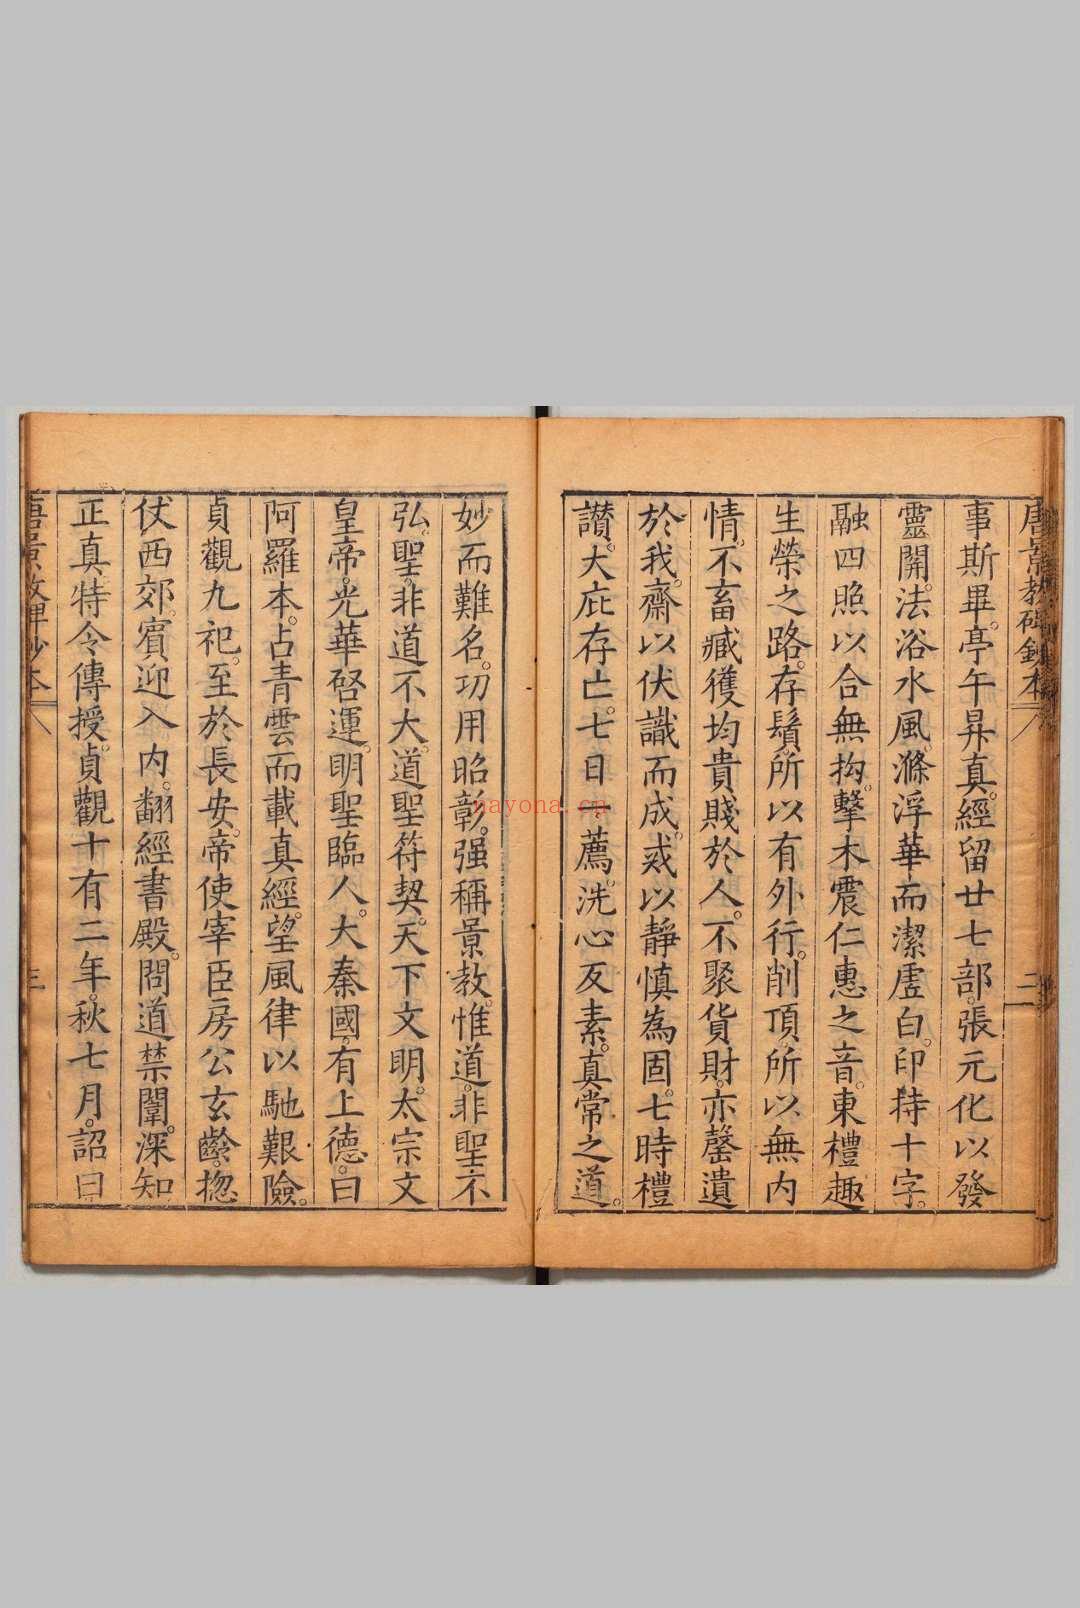 唐景教碑鈔本
二
事斯畢。亭午昇真。經留廿七部。張元化以發
靈關。法浴水風。滌浮華而潔虛白。印持十字。
融四照以合無拘。擊木震仁惠之音。東禮趣
生榮之路。存鬚。所以有外行。削頂。所以無内
情。不畜臧獲均貴賤於人。不聚貨財。亦罄遺
於我。齋以伏識而成。戒以靜慎為固。七時禮
讃。大庇存亡。七日一薦。洗心反素。真常之道。
妙而難名。功用昭彰。强稱景教。惟道。非聖不
弘。聖。非道不大。道聖符契。天下文明。太宗文
皇帝。光華啓運。明聖臨人。大秦國。有上德。曰
阿羅本。占青雲而載真經。望風律以馳艱險。
貞觀九祀。至於長安。帝使宰臣房公玄齡。揔
仗西郊。賓迎入内。翻經書殿。問道禁闈。深知
正真。特令傳授。貞觀十有二年。秋七月。詔曰
唐景教碑鈔本
三
nayona.cn